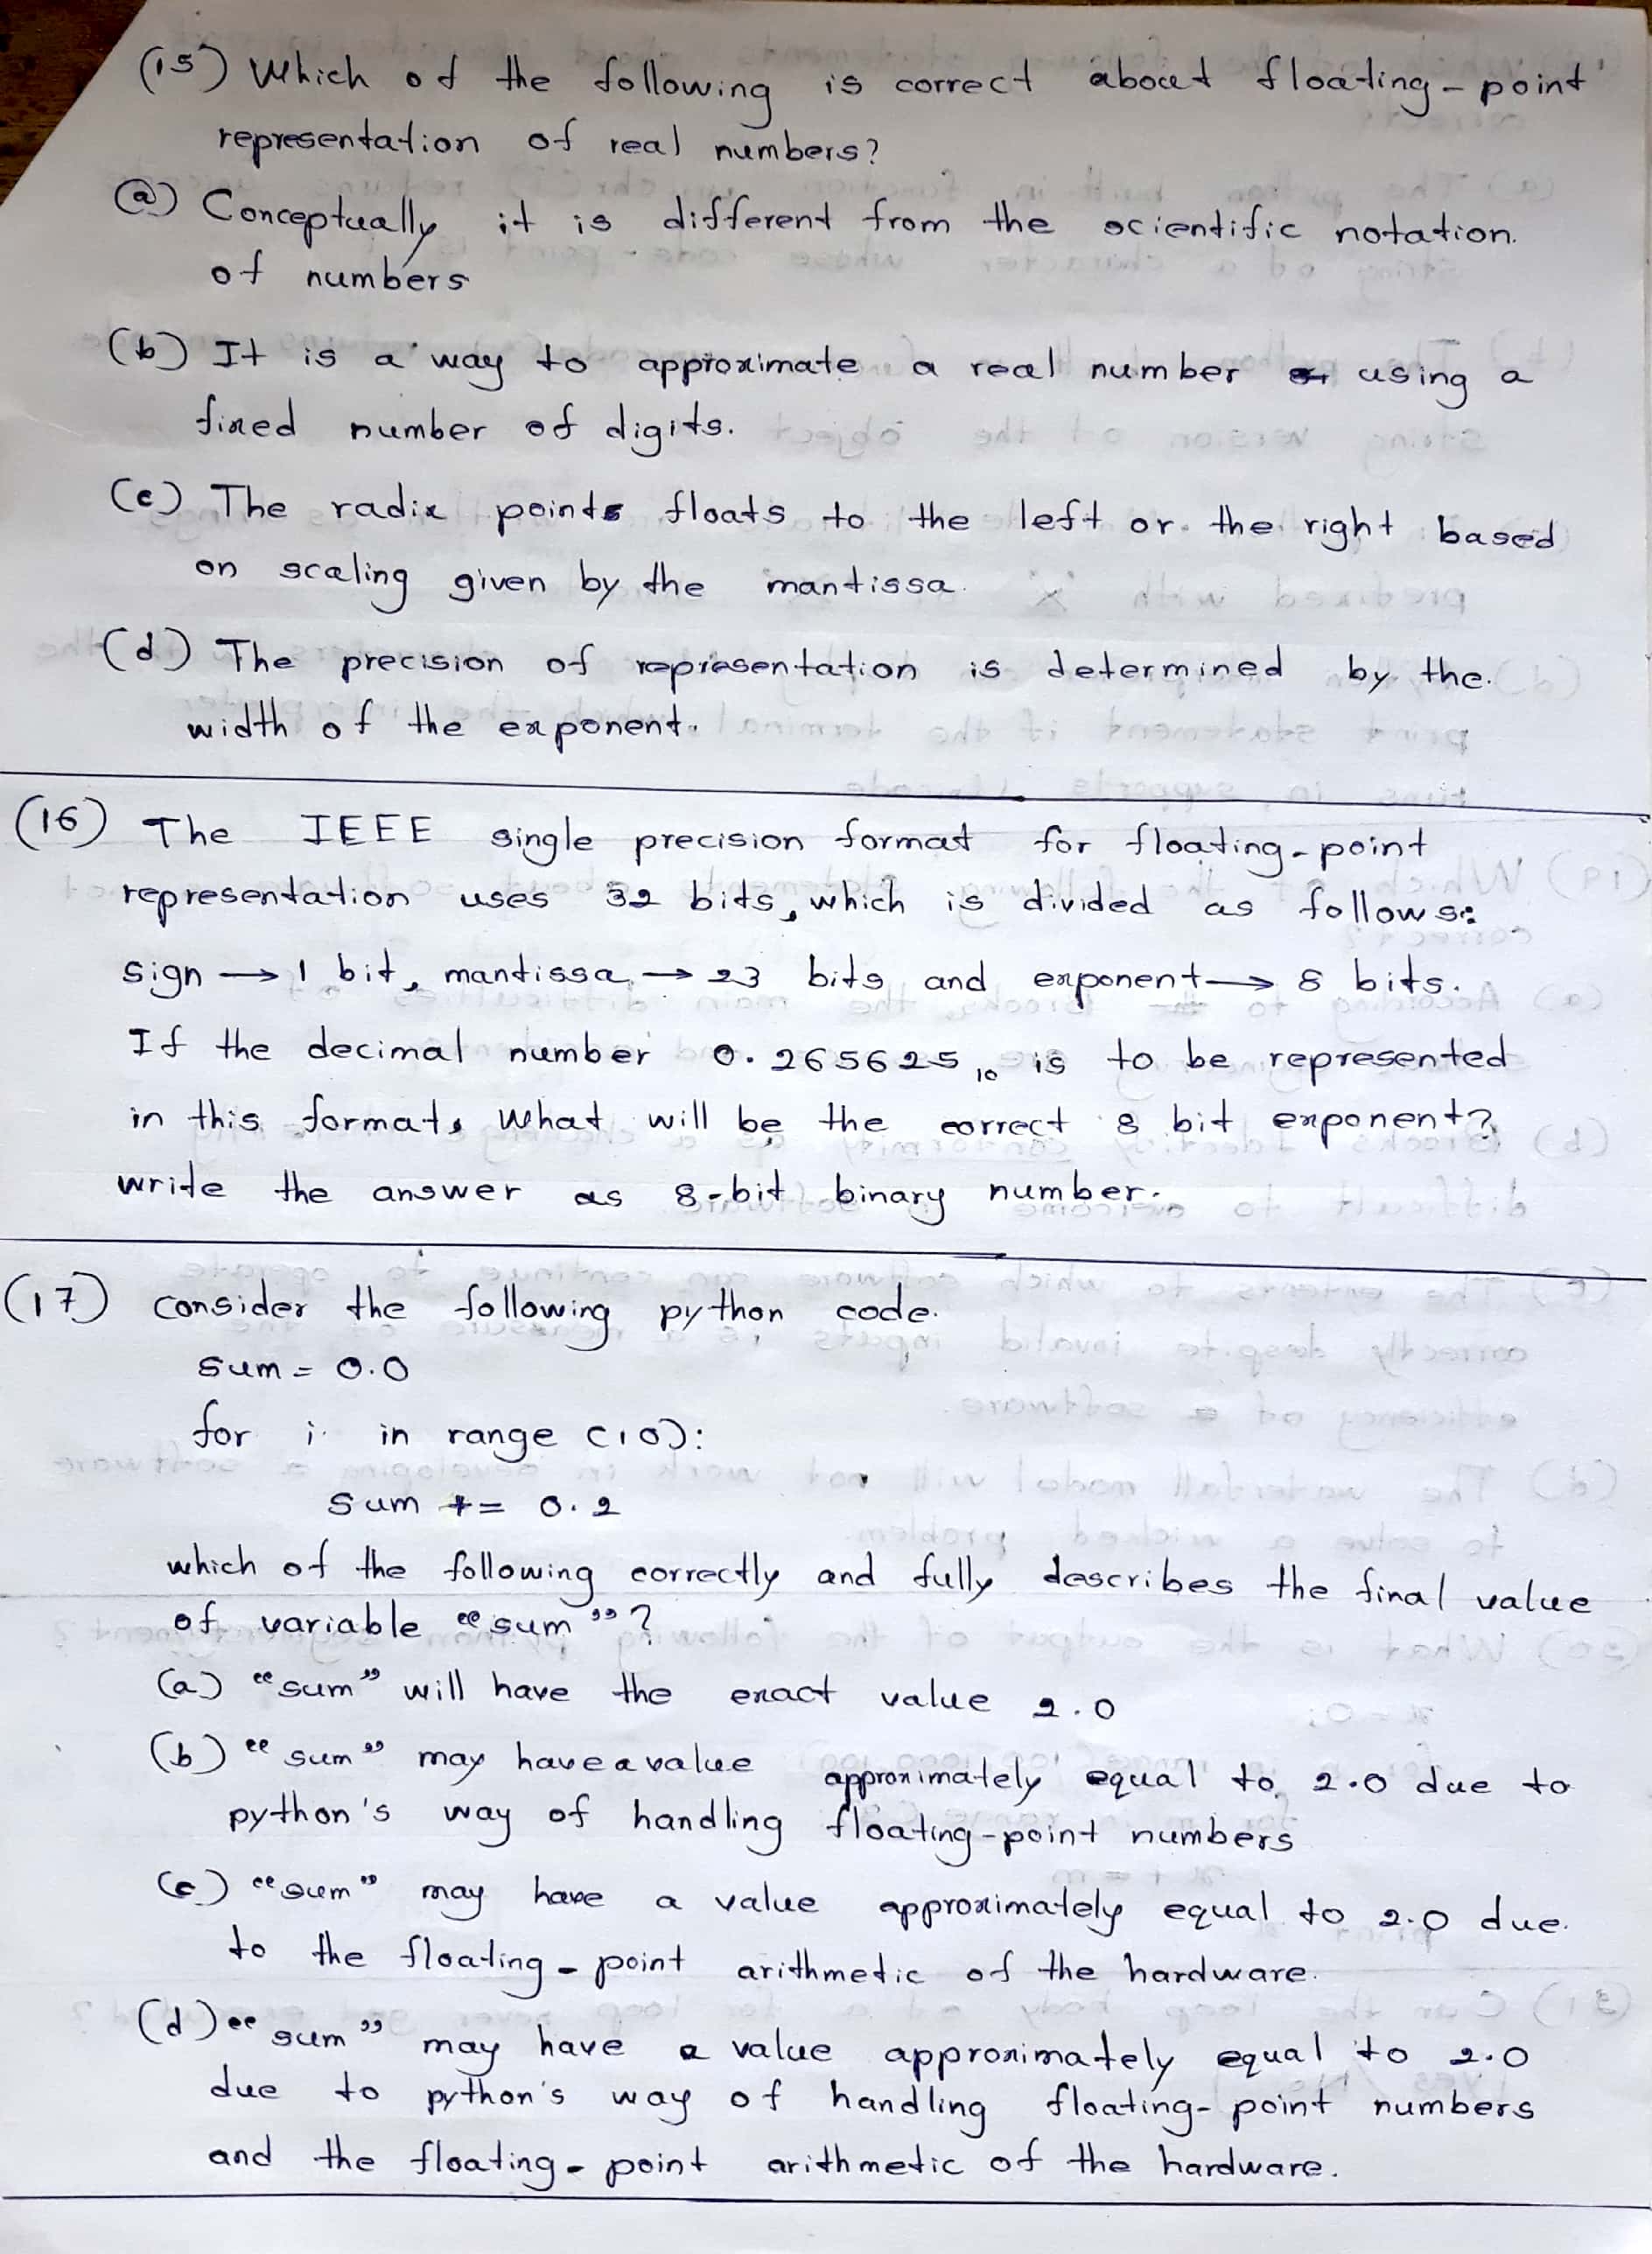 (15) Which of the following is correct about floating-point
representation of real numbers?
(a) Conceptually it is different from the scientific notation.
of numbers
(b) It is a way to approximate a real number using a
fixed number of digits.
(c) The radix points floats to the left or the right based
on scaling given by the mantissa.
(d) The precision of representation is determined by the.
width of the exponent.
(16) The IEEE single precision format for floating-point
representation uses 32 bits, which is divided as follows:
sign → 1 bit, mantissa → 23 bits and exponent → 8 bits.
If the decimal number 0.265625₁₀ is to be represented
in this format, what will be the correct 8 bit exponent?
write the answer as 8-bit binary number.
(17) consider the following python code.
sum = 0.0
for i in range (10):
sum += 0.2
which of the following correctly and fully describes the final value
of variable "sum"?
(a) "sum" will have the exact value 2.0
(b) "sum" may have a value approximately equal to 2.0 due to
python's way of handling floating-point numbers
(c) "sum" may have a value approximately equal to 2.0 due.
to the floating-point arithmetic of the hardware.
(d) "sum" may have a value approximately equal to 2.0
due to python's way of handling floating-point numbers
and the floating-point arithmetic of the hardware.